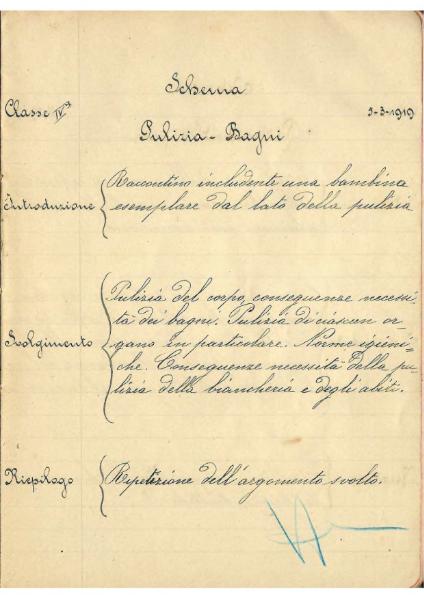 Schema
Classe IVª
3-3-1919
Pulizia - Bagni
Introduzione
Raccontino includente una bambina
esemplare dal lato della pulizia
Svolgimento
Pulizia del corpo, conseguenze necessi-
tà dei bagni. Pulizia di ciascun or-
gano in particolare. Norme igieni-
che. Conseguenze necessità della pu-
lizia della biancheria e degli abiti.
Riepilogo
Ripetizione dell'argomento svolto.